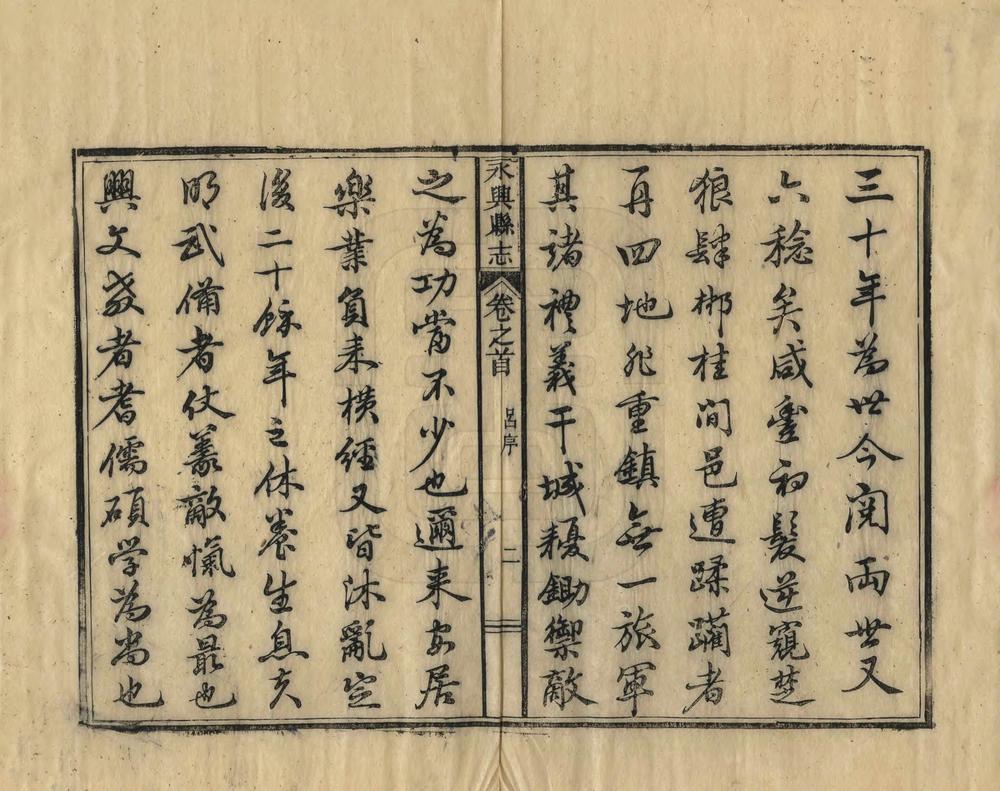 三十年為世今閱兩世又
六稔矣咸豐初髮逆窺楚
狼肆郴桂間邑遭蹂躪者
再四地非重鎮無一旅軍
其諸禮義干城耰鋤禦敵
永興縣志
卷之首
呂序
二
之為功當不少也邇来安居
樂業負耒横經又皆沐亂定
後二十餘年之休養生息亥
明武備者仗義敵愾為最也
興文教者耆儒碩学為尚也